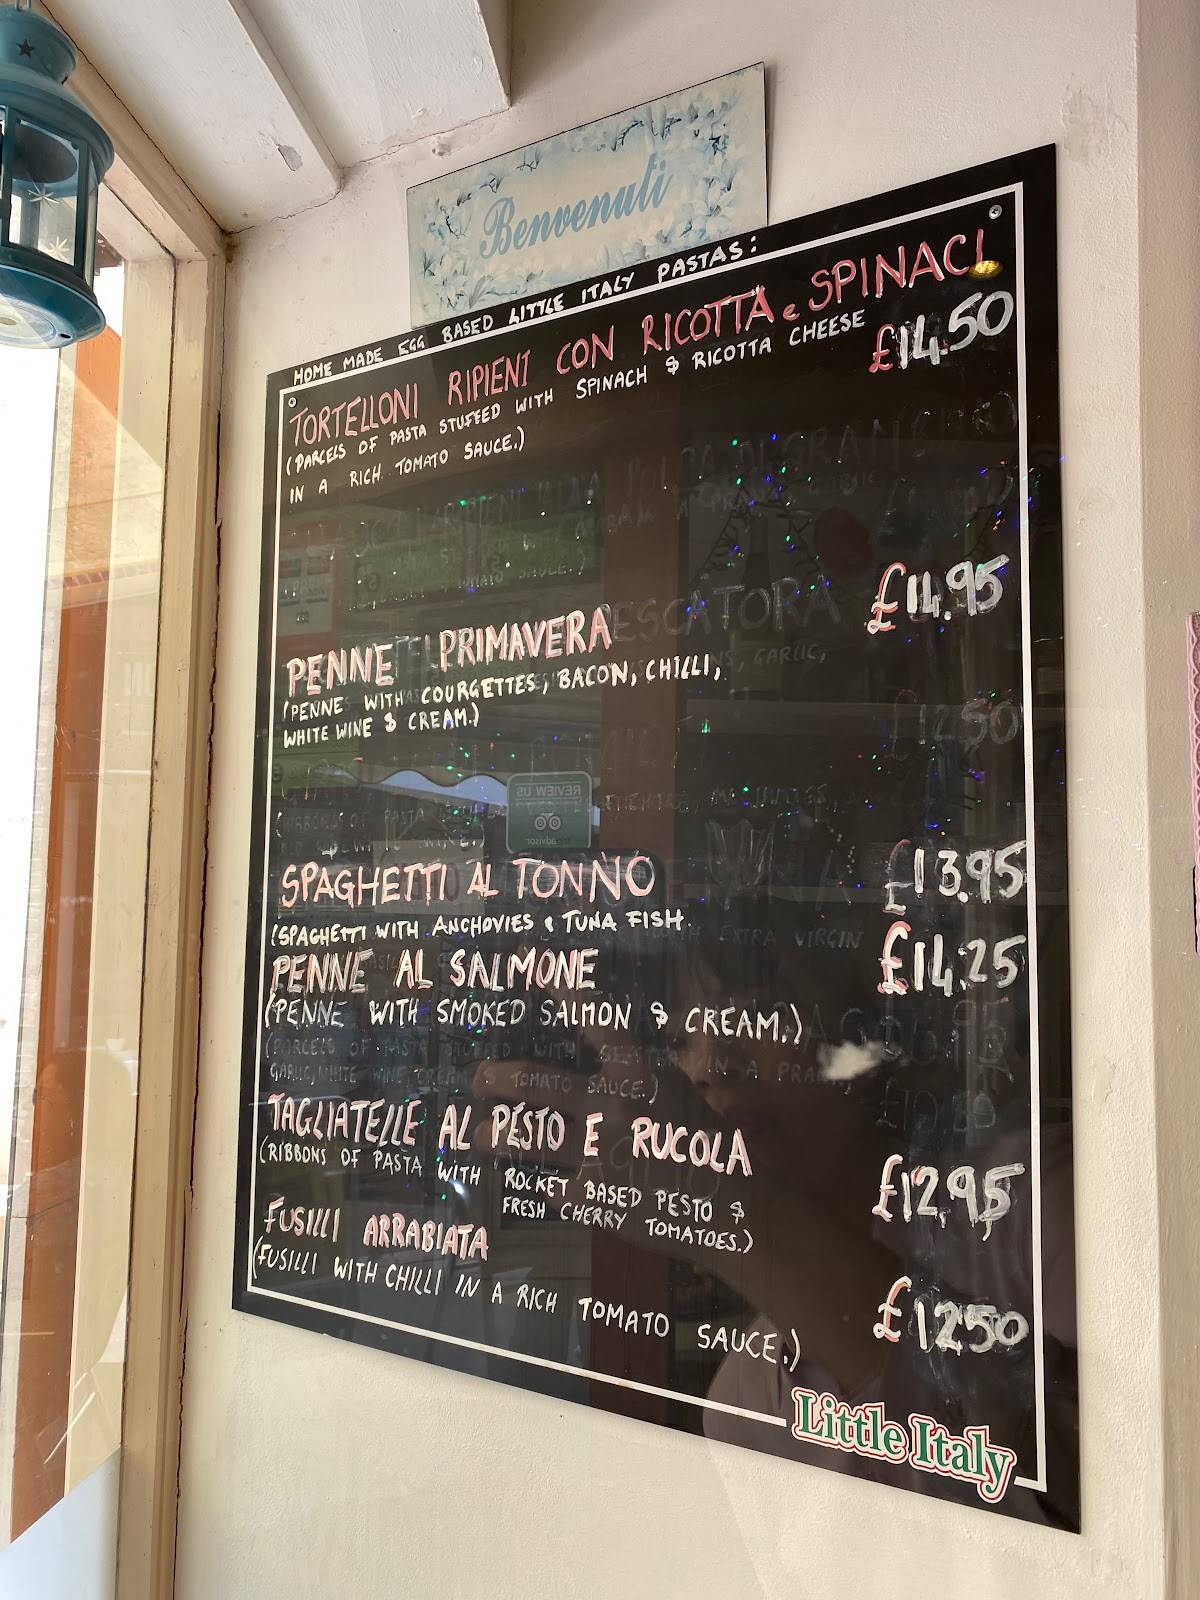 Benvenuti
HOME MADE EGG BASED LITTLE ITALY PASTAS:
TORTELLONI RIPIENI CON RICOTTA e SPINACI
(PARCELS OF PASTA STUFFED WITH SPINACH & RICOTTA CHEESE £14.50
IN A RICH TOMATO SAUCE.)
PENNE PRIMAVERA £14.95
(PENNE WITH COURGETTES, BACON, CHILLI,
WHITE WINE & CREAM.)
REVIEW US
advisor
SPAGHETTI AL TONNO £13.95
(SPAGHETTI WITH ANCHOVIES & TUNA FISH.
PENNE AL SALMONE £14.25
(PENNE WITH SMOKED SALMON & CREAM.)
TAGLIATELLE AL PESTO E RUCOLA £12,95
(RIBBONS OF PASTA WITH ROCKET BASED PESTO &
FRESH CHERRY TOMATOES.)
FUSILLI ARRABIATA £1250
(FUSILLI WITH CHILLI IN A RICH TOMATO SAUCE.)
Little Italy